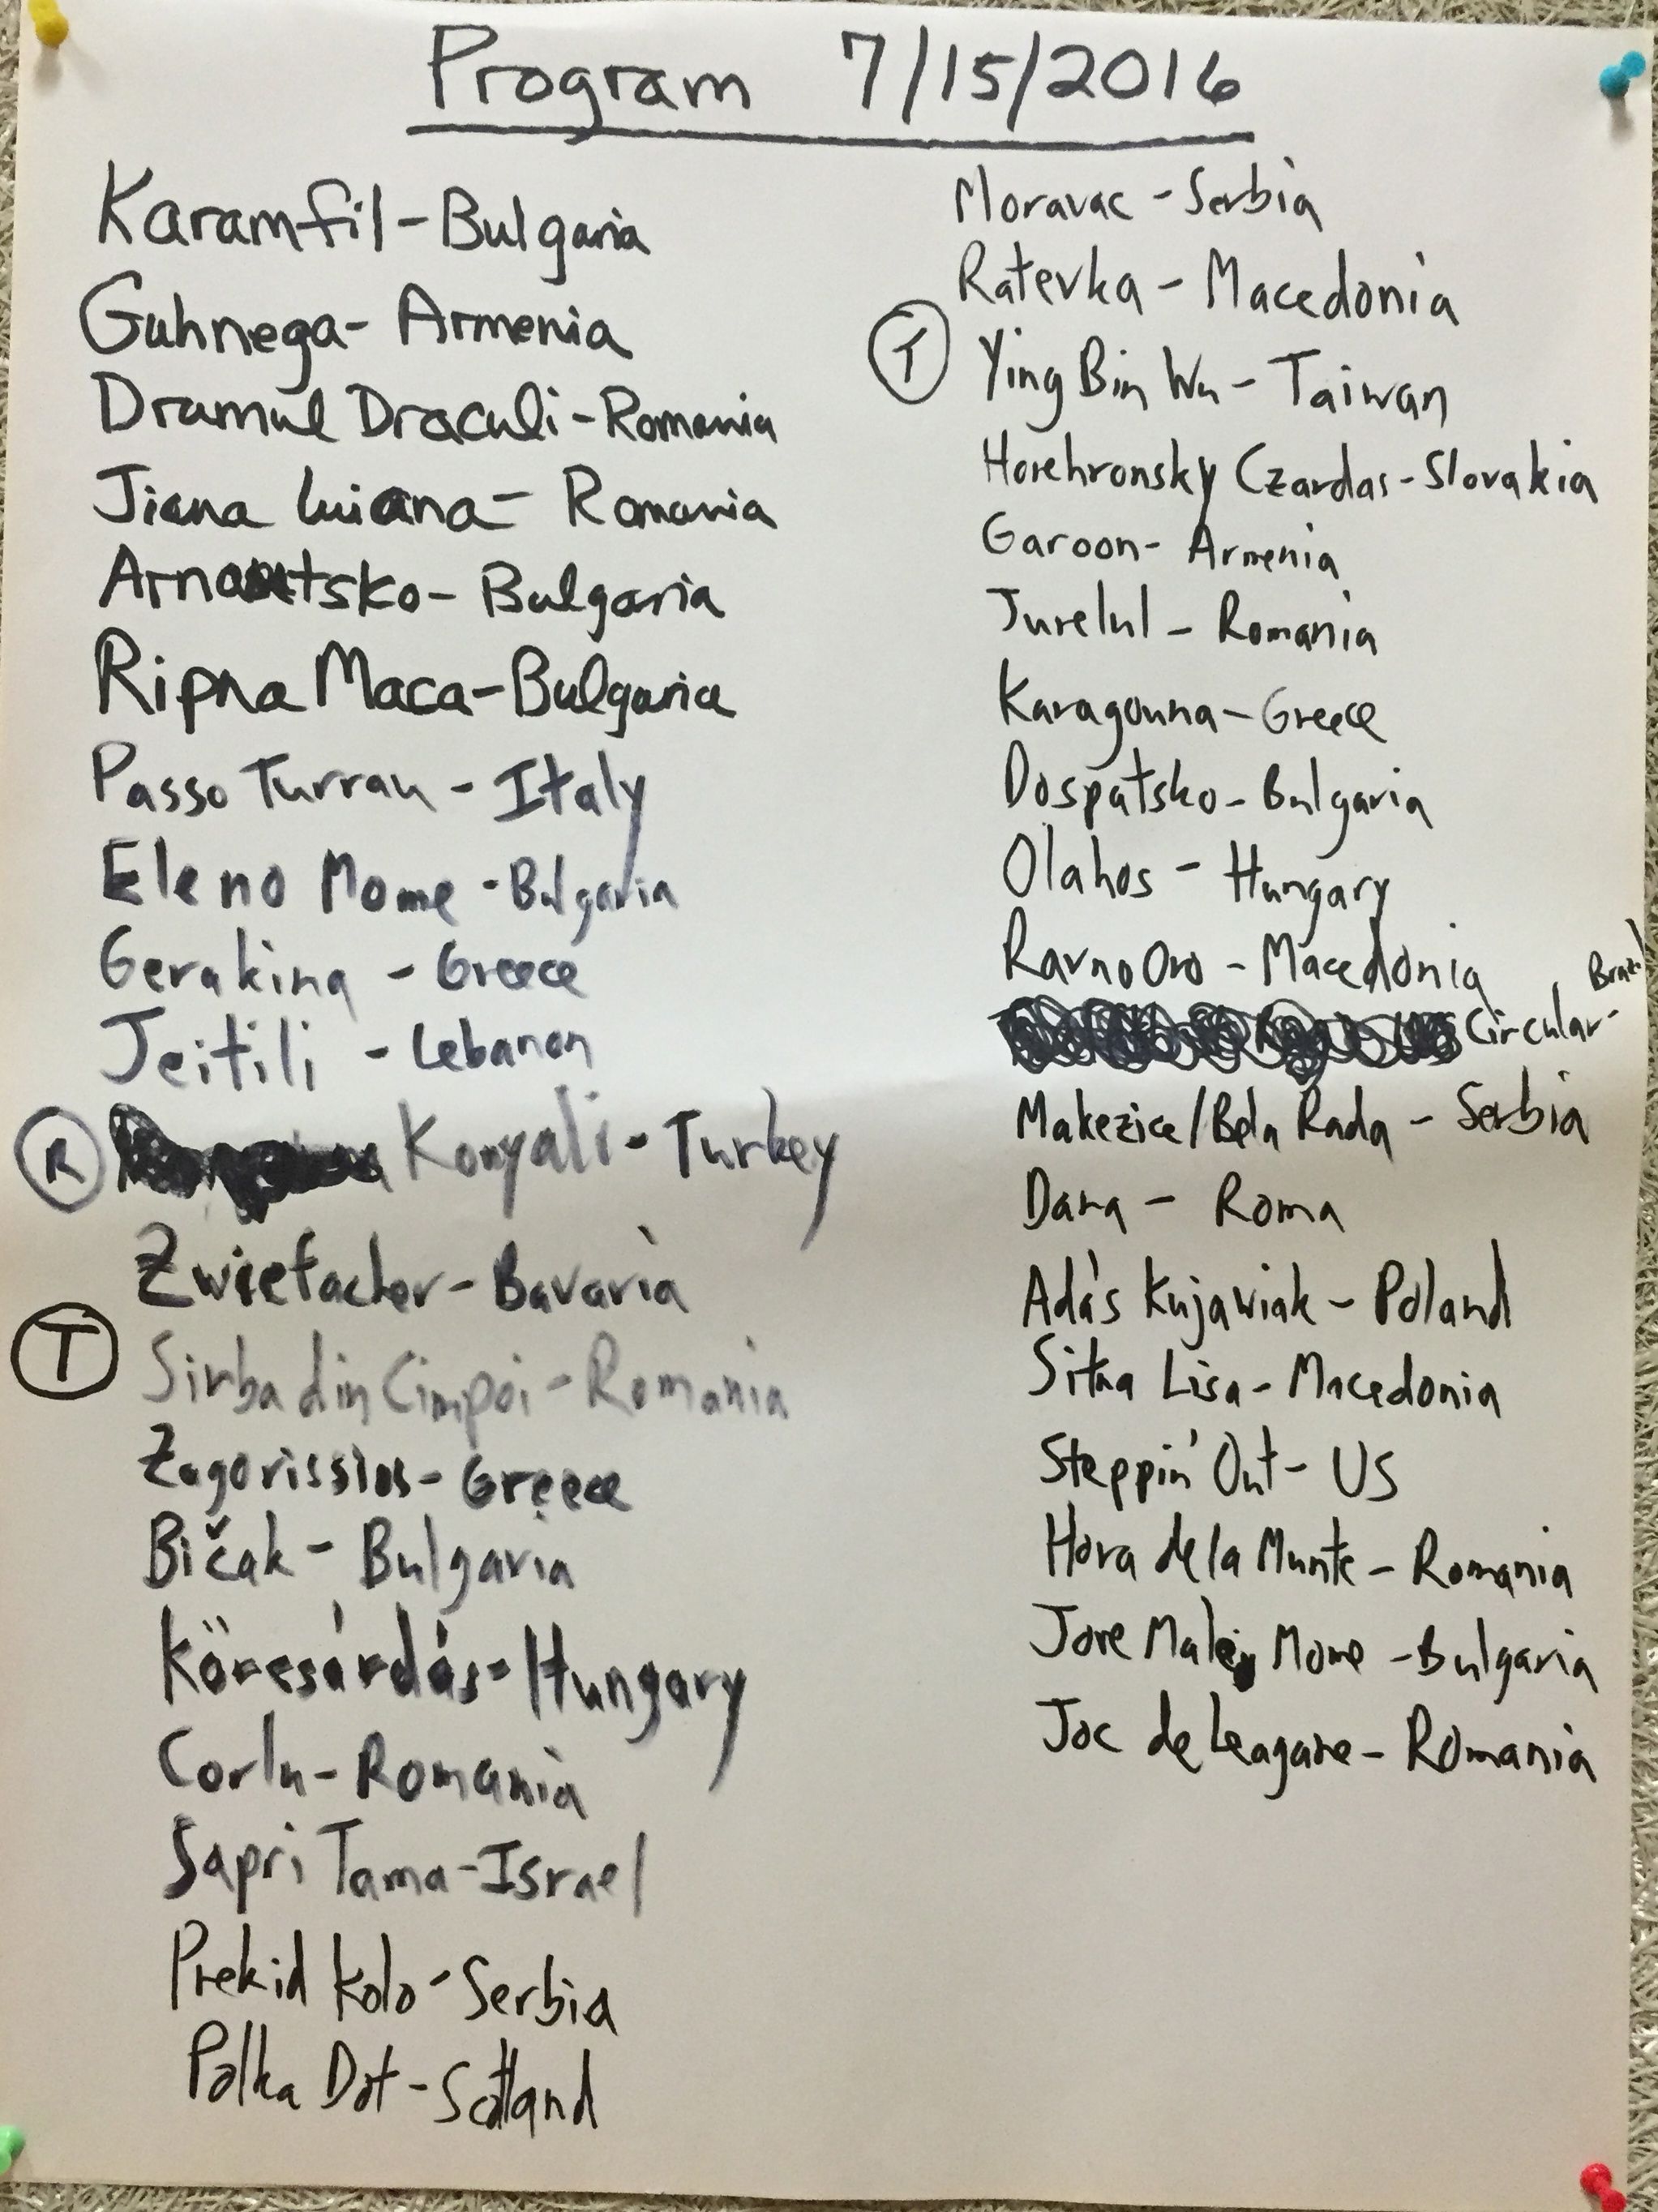 Program 7/15/2016
Karamfil - Bulgaria
Guhnega - Armenia
Dramul Draculi - Romania
Jiana Luiana - Romania
Arnaoutsko - Bulgaria
Ripna Maca - Bulgaria
Passo Turrau - Italy
Eleno Mome - Bulgaria
Gerakina - Greece
Jeitili - Lebanon
R Konyali - Turkey
Zwiefacher - Bavaria
T Sirba din Cimpoi - Romania
Zagorissios - Greece
Bičak - Bulgaria
Körcsárdás - Hungary
Corlu - Romania
Sapri Tama - Israel
Prekid Kolo - Serbia
Polka Dot - Scotland
Moravac - Serbia
Ratevka - Macedonia
T Ying Bin Wu - Taiwan
Horehronsky Czardas - Slovakia
Garoon - Armenia
Jurelul - Romania
Karagouna - Greece
Dospatsko - Bulgaria
Olahos - Hungary
Ravno Oro - Macedonia
Circular - Brazil
Makezice/Bela Rada - Serbia
Dana - Roma
Ada's Kujawiak - Poland
Sitna Lisa - Macedonia
Steppin' Out - US
Hora de la Munte - Romania
Jove Malej Mome - Bulgaria
Joc de Leagane - Romania